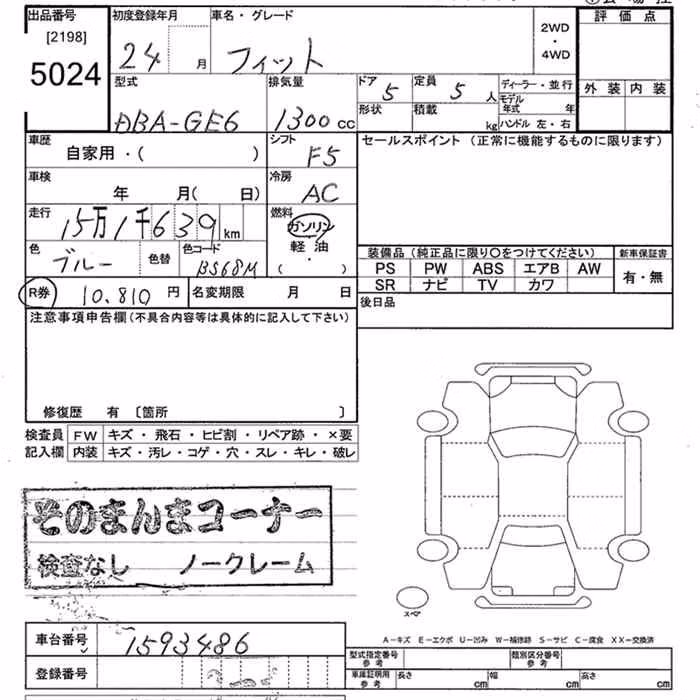 出品番号 初度登録年月 車名・グレード 2WD・4WD 評価点
[2198]
5024
24 月 フィット
型式 排気量 ドア 5 定員 5 人 ディーラー・並行 外装 内装
DBA-GE6 1300 cc 形状 積載 kg モデル年式 年
ハンドル 左・右
車歴 シフト セールスポイント (正常に機能するものに限ります)
自家用・( ) F5
車検 冷房
年 月( 日) AC
走行 燃料
15万1千639 km ガソリン・軽油・( )
色 色替 色コード 装備品 (純正品に限り○をつけてください) 新車保証書
ブルー BS68M PS PW ABS エアB AW 有・無
R券 10,810 円 名変期限 月 日 SR ナビ TV カワ
後日品
注意事項申告欄 (不具合内容等は具体的に記入して下さい)
修復歴 有 〔箇所 〕
検査員 FW キズ・飛石・ヒビ割・リペア跡・×要
記入欄 内装 キズ・汚レ・コゲ・穴・スレ・キレ・破レ
そのまんまコーナー
検査なし ノークレーム
スペア
A-キズ E-エクボ U-凹み W-補修跡 S-サビ C-腐食 XX-交換済
車台番号 1593486 型式指定番号 参考 類別区分番号 参考
登録番号 車庫証明用 参考 長さ cm 幅 cm 高さ cm